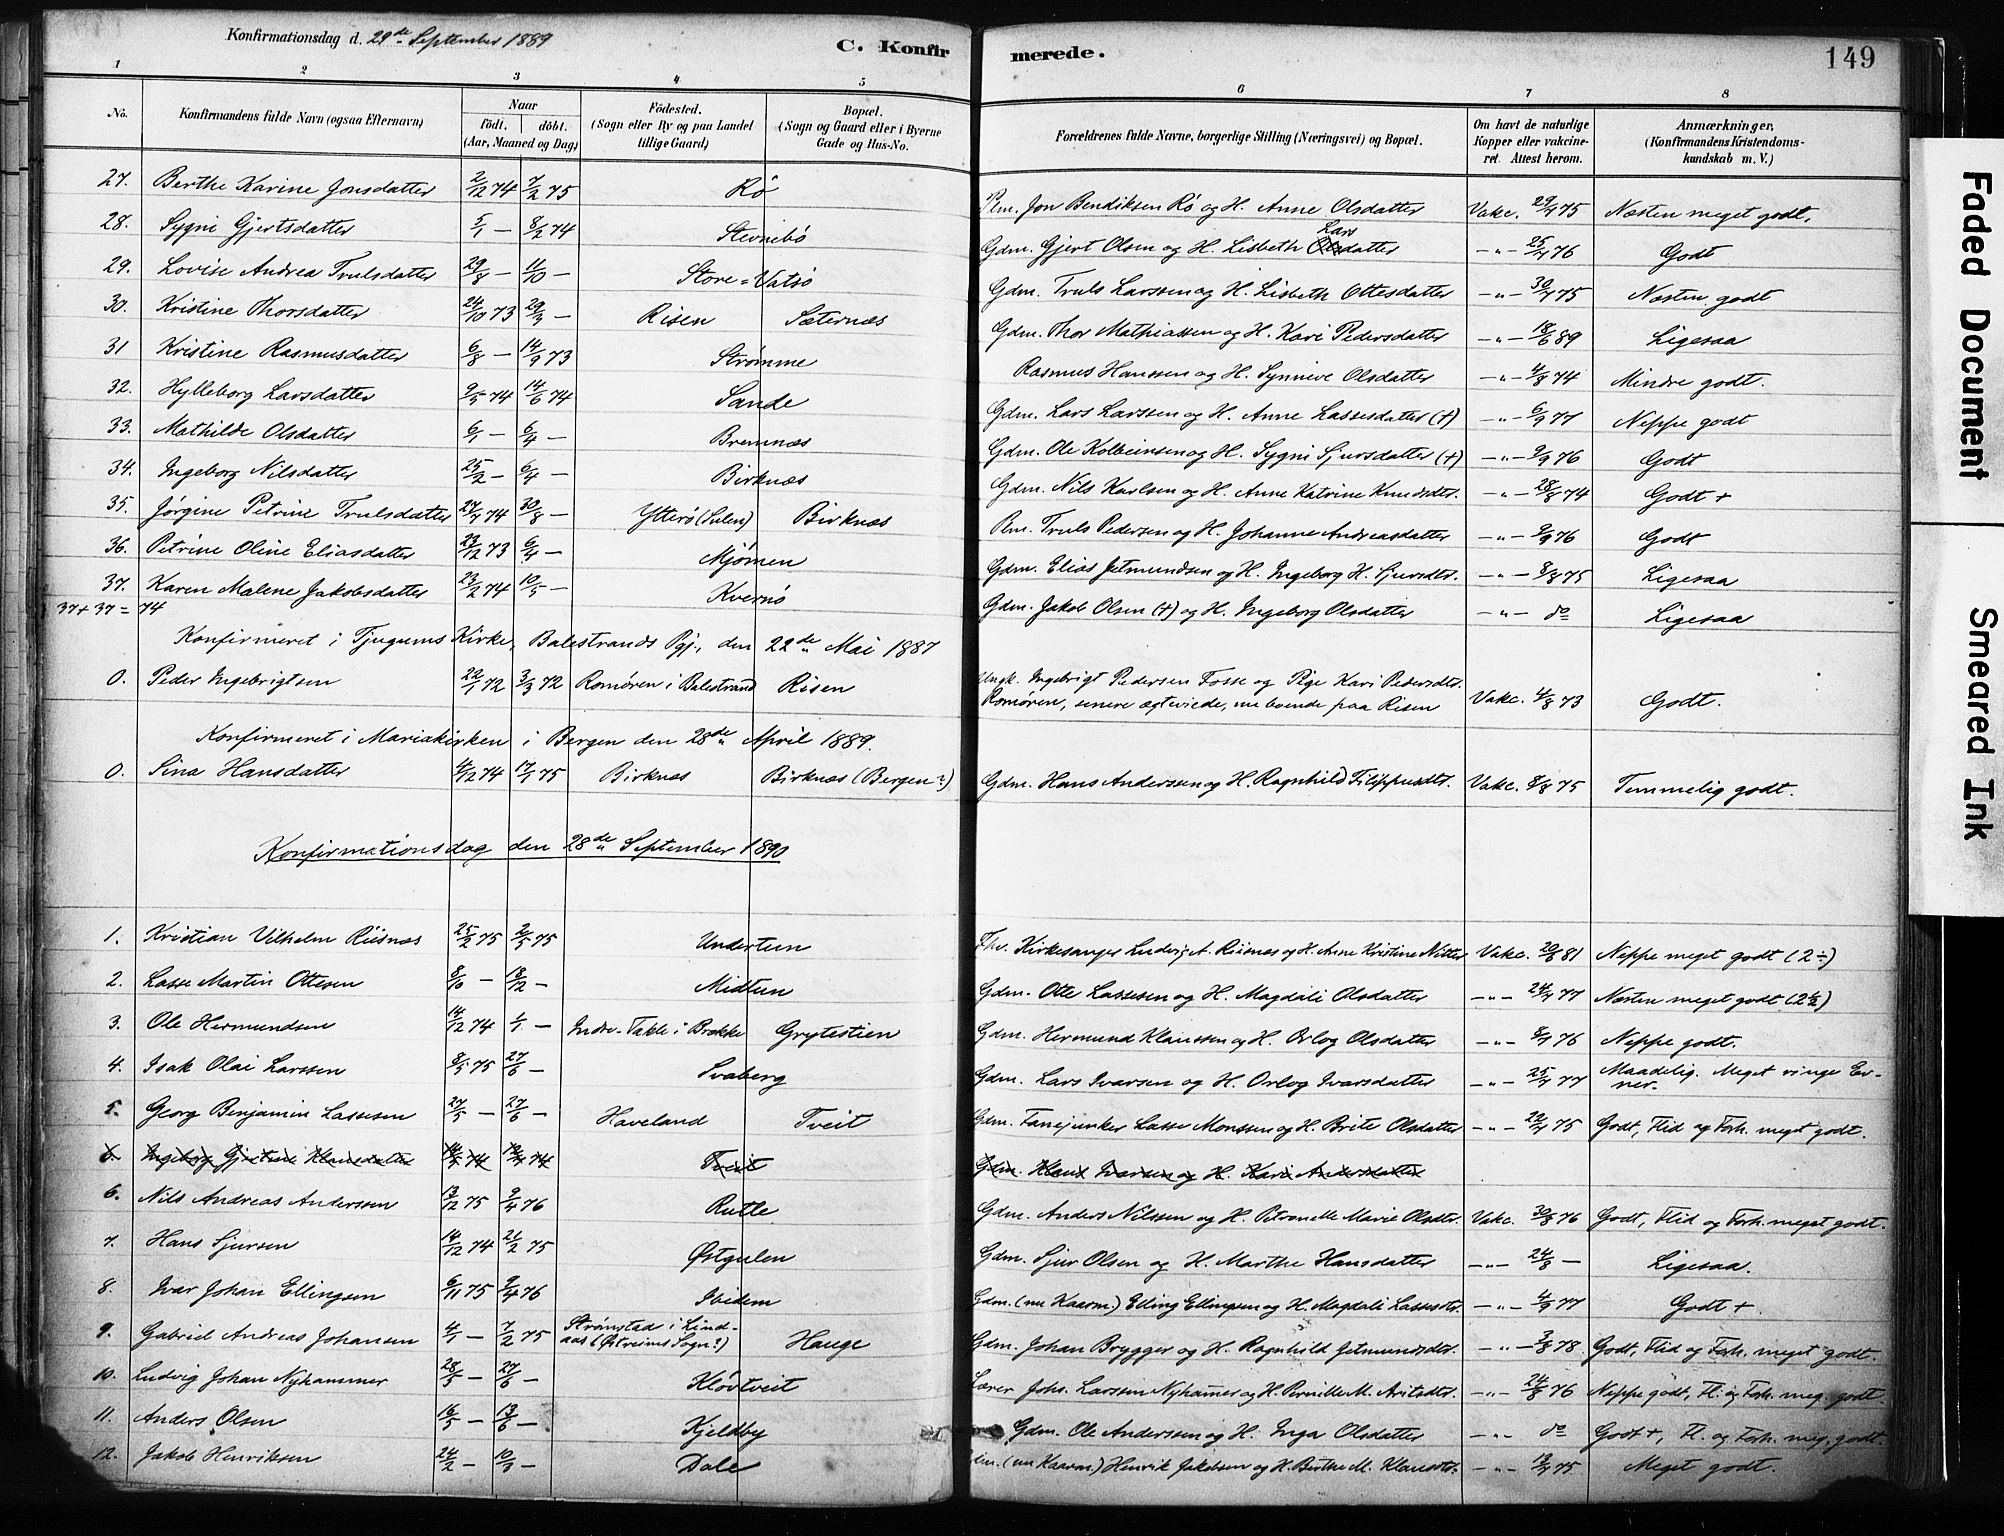 Konfirmationsdag d. 29de September 1889
C. Konfirmerede.
149
1 2 3 4 5 6 7 8
No. | Konfirmandens fulde Navn (ogsaa Efternavn) | Naar födt. döbt. (Aar, Maaned og Dag) | Födested. (Sogn eller By og paa Landet tillige Gaard) | Bopæl. (Sogn og Gaard eller i Byerne Gade og Hus-No. | Forældrenes fulde Navne, borgerlige Stilling (Næringsvei) og Bopæl. | Om havt de naturlige Kopper eller vakcineret. Attest herom. | Anmærkninger, (Konfirmandens Kristendomskundskab m. V.)
27. Berthe Karine Jonsdatter 2/12 74 7/2 75 Rø Pm. Jon Bendiksen Rø og H. Anne Olsdatter Vakc. 29/7 75 Næsten meget godt.
28. Sygni Gjertsdatter 5/1 — 8/2 74 Stevnebø Gdm. Gjert Olsen og H. Lisbeth Larsdatter —"— 25/7 76 Godt
29. Lovise Andrea Trulsdatter 29/8 — 11/10 — Store=Vatsø Gdm. Truls Larssen og H. Lisbeth Ottesdatter —"— 30/7 75 Næsten godt
30. Kristine Thorsdatter 24/10 73 29/3 — Risen Sæternæs Gdm. Thor Mathiassen og H. Kari Pedersdatter —"— 18/6 89 Ligesaa
31 Kristine Rasmusdatter 6/8 — 14/9 73 Strømme Rasmus Hanssen og H. Synneve Olsdatter —"— 4/8 74 Mindre godt.
32. Hylleborg Larsdatter 9/5 74 14/6 74 Sande Gdm. Lars Larssen og H. Anne Lassesdatter (+) —"— 6/9 77 Neppe godt
33. Mathilde Olsdatter 6/1 — 6/4 — Bremnæs Gdm. Ole Kolbeinsen og H. Sygni Sjursdatter (+) —"— 9/9 76 Godt
34. Ingeborg Nilsdatter 25/2 — 6/4 — Birknæs Gdm. Nils Karlsen og H. Anne Katrine Knudsdtr. —"— 28/8 74 Godt +
35. Jørgine Petrine Trulsdatter 27/7 74 30/8 — Ytterø (Sulen) Birknæs Pm. Truls Pedersen og H. Johanne Andreasdatter —"— 9/9 76 Godt
36. Petrine Oline Eliasdatter 23/12 73 6/4 — Mjømen Gdm. Elias Jetmundsen og H. Ingeborg H. Sjursdtr. —"— 8/8 75 Ligesaa
37. Karen Malene Jakobsdatter 23/2 74 10/5 — Kvernø Gdm. Jakob Olsen (+) og H. Ingeborg Olsdatter —"— do Ligesaa
37 + 37 = 74
Konfirmeret i Tjugums Kirke, Balestrands Pgj., den 22de Mai 1887
0. Peder Ingebrigtsen 22/1 72 3/3 72 Romøren i Balestrand Risen Ungk. Ingebrigt Pedersen Fosse og Pige Kari Pedersdtr. Romøren, senere ægteviede, nu boende paa Risen Vakc. 4/8 73 Godt.
Konfirmeret i Mariakirken i Bergen den 28de April 1889.
0. Sina Hansdatter 4/12 74 17/1 75 Birknæs Birknæs (Bergen?) Gdm. Hans Anderssen og H. Ragnhild Filippusdtr. Vakc. 8/8 75 Temmelig godt.
Konfirmationsdag den 28de September 1890
1. Kristian Vilhelm Riisnæs 25/2 75 2/5 75 Undertun Fhv. Kirkesanger Ludvig A. Riisnæs og H. Anne Kristine Nitter Vakc. 20/6 81 Neppe meget godt (2÷)
2. Lasse Martin Ottesen 8/10 — 18/12 — Midtun Gdm. Otte Lassesen og H. Magdali Olsdatter —"— 24/7 77 Næsten meget godt (2½)
3. Ole Hermundsen 14/12 74 1/1 — Indre-Takle i Brække Grytestien Gdm. Hermund Klaussen og H. Orlog Olsdatter —"— 8/7 76 Neppe godt.
4. Isak Olai Larssen 8/5 75 27/6 — Svaberg Gdm. Lars Ivarsen og H. Orlog Ivarsdatter —"— 25/7 77 Maadelig. Meget ringe Evner.
5. Georg Benjamin Lassesen 27/5 — 27/6 — Haveland Tveit Gdm. Fanejunker Lasse Monssen og H. Brite Olsdatter —"— 22/7 75 Godt, Flid og Forh. meget godt.
Ingeborg Gjertine Klausdatter 74 74 Tveit Gdm. Klaus Ivarsen og H. Kari Andersdatter
6. Nils Andreas Anderssen 13/12 75 9/4 76 Rutle Gdm. Anders Nilssen og H. Petronelle Marie Olsdtr. Vakc. 30/8 76 Godt, Flid og Forh. meget godt.
7. Hans Sjursen 14/12 74 21/2 75 Østgulen Gdm. Sjur Olsen og H. Marthe Hansdatter —"— 24/8 — Ligesaa.
8. Ivar Johan Ellingsen 6/11 75 9/4 76 Ibidem Gdm. (nu Kaarm.) Elling Ellingsen og H. Magdali Lassesdtr. —"— 4/9 77 Godt +.
9. Gabriel Andreas Johansen 4/1 — 7/2 75 Strømstad i Lindaas (Østreims Sogn?) Hauge Gdm. Johan Brygger og H. Ragnhild Jetmundsdtr. —"— 3/8 78 Godt, Flid og Forh. meget godt.
10. Ludvig Johan Nyhammer 28/5 — 27/6 — Kløvtveit Lærer Johs. Larssen Nyhamer og H. Pernille M. Arilsdtr. —"— 24/8 76 Neppe godt, Fl. og Forh. meg. godt.
11. Anders Olsen 16/5 — 13/6 — Kjeldby Gdm. Ole Anderssen og H. Inga Olsdatter —"— do Godt +, Fl. og Forh. meg. godt.
12. Jakob Henriksen 24/2 — 10/3 — Dale (nu Kaarm) Henrik Jakobsen og H. Berthe M. Klausdtr. —"— 13/7 75 Meget godt.
Faded Document
Smeared Ink